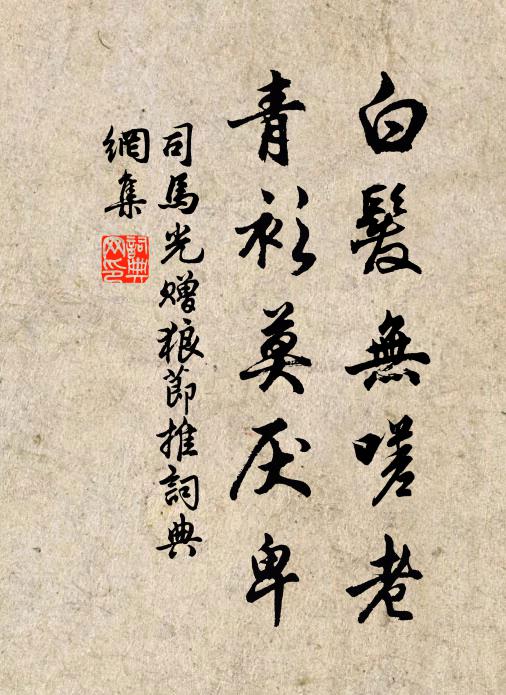 白髮無嗟老
青衫莫厌卑
司馬光贈狼節推詞典
網集
詞典网印